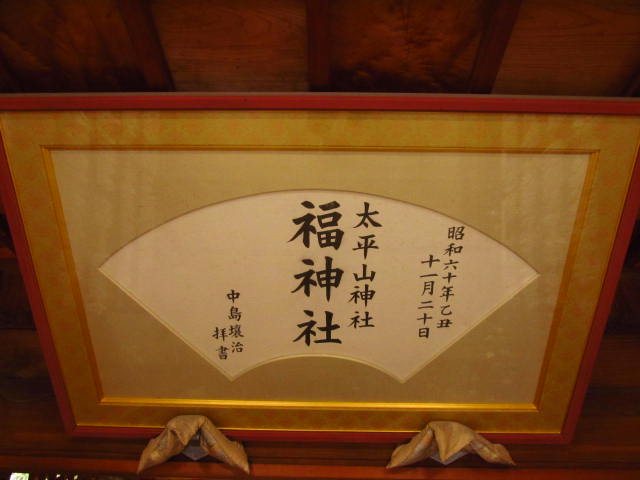 昭和六十年乙丑
十一月二十日
太平山神社
福神社
中島壤治
拝書